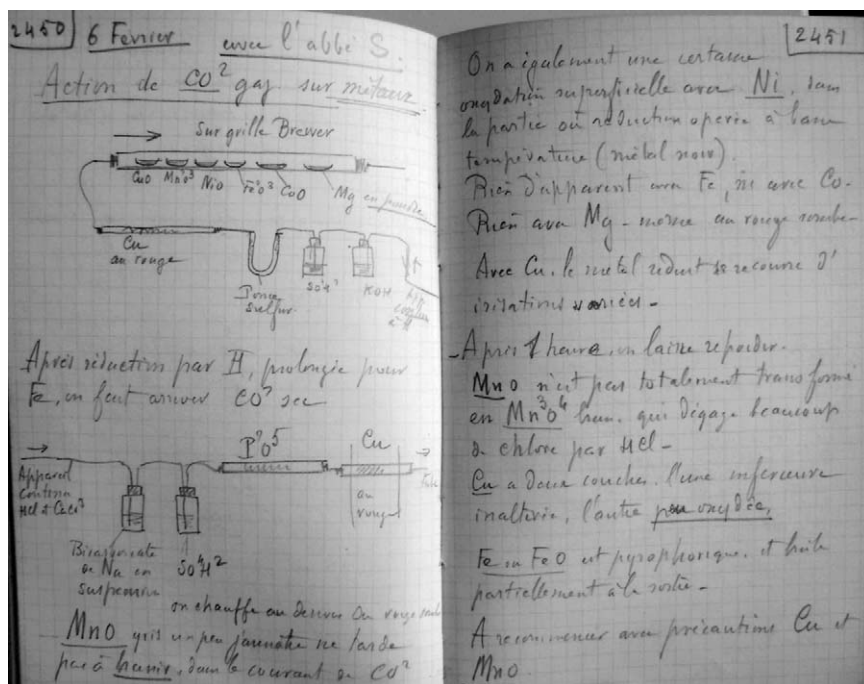 2450
6 Fevrier avec l'abbé S.
Action de CO² gaz sur métaux.
Sur grille Brewer
CuO Mn²O³ NiO Fe²O³ CoO Mg en poudre
Cu
au rouge
Ponce
sulfur.
SO⁴H²
KOH
App.
continu
à H
Après réduction par H, prolongée pour
Fe, on fait arriver CO² sec
P²O⁵
Cu
au
rouge
Appareil
continu
HCl et CaCO³
Bicarbonate
de Na en
suspension
SO⁴H²
on chauffe au dessous du rouge sombre
MnO gris un peu jaunâtre ne tarde
pas à brunir, dans le courant de CO²
2451
On a également une certaine
oxydation superficielle avec Ni, dans
la partie où réduction opérée à basse
température (métal noir).
Rien d'apparent avec Fe, ni avec Co.
Rien avec Mg - même au rouge sombre -
Avec Cu, le métal réduit se recouvre d'
irisations variées -
- Après 1 heure, on laisse refroidir.
MnO n'est pas totalement transformé
en Mn³O⁴ brun, qui dégage beaucoup
de chlore par HCl -
Cu a deux couches, l'une inférieure
inaltérée, l'autre peu oxydée,
Fe ou FeO est pyrophorique, et brûle
partiellement à la sortie -
A recommencer avec précautions Cu et
MnO